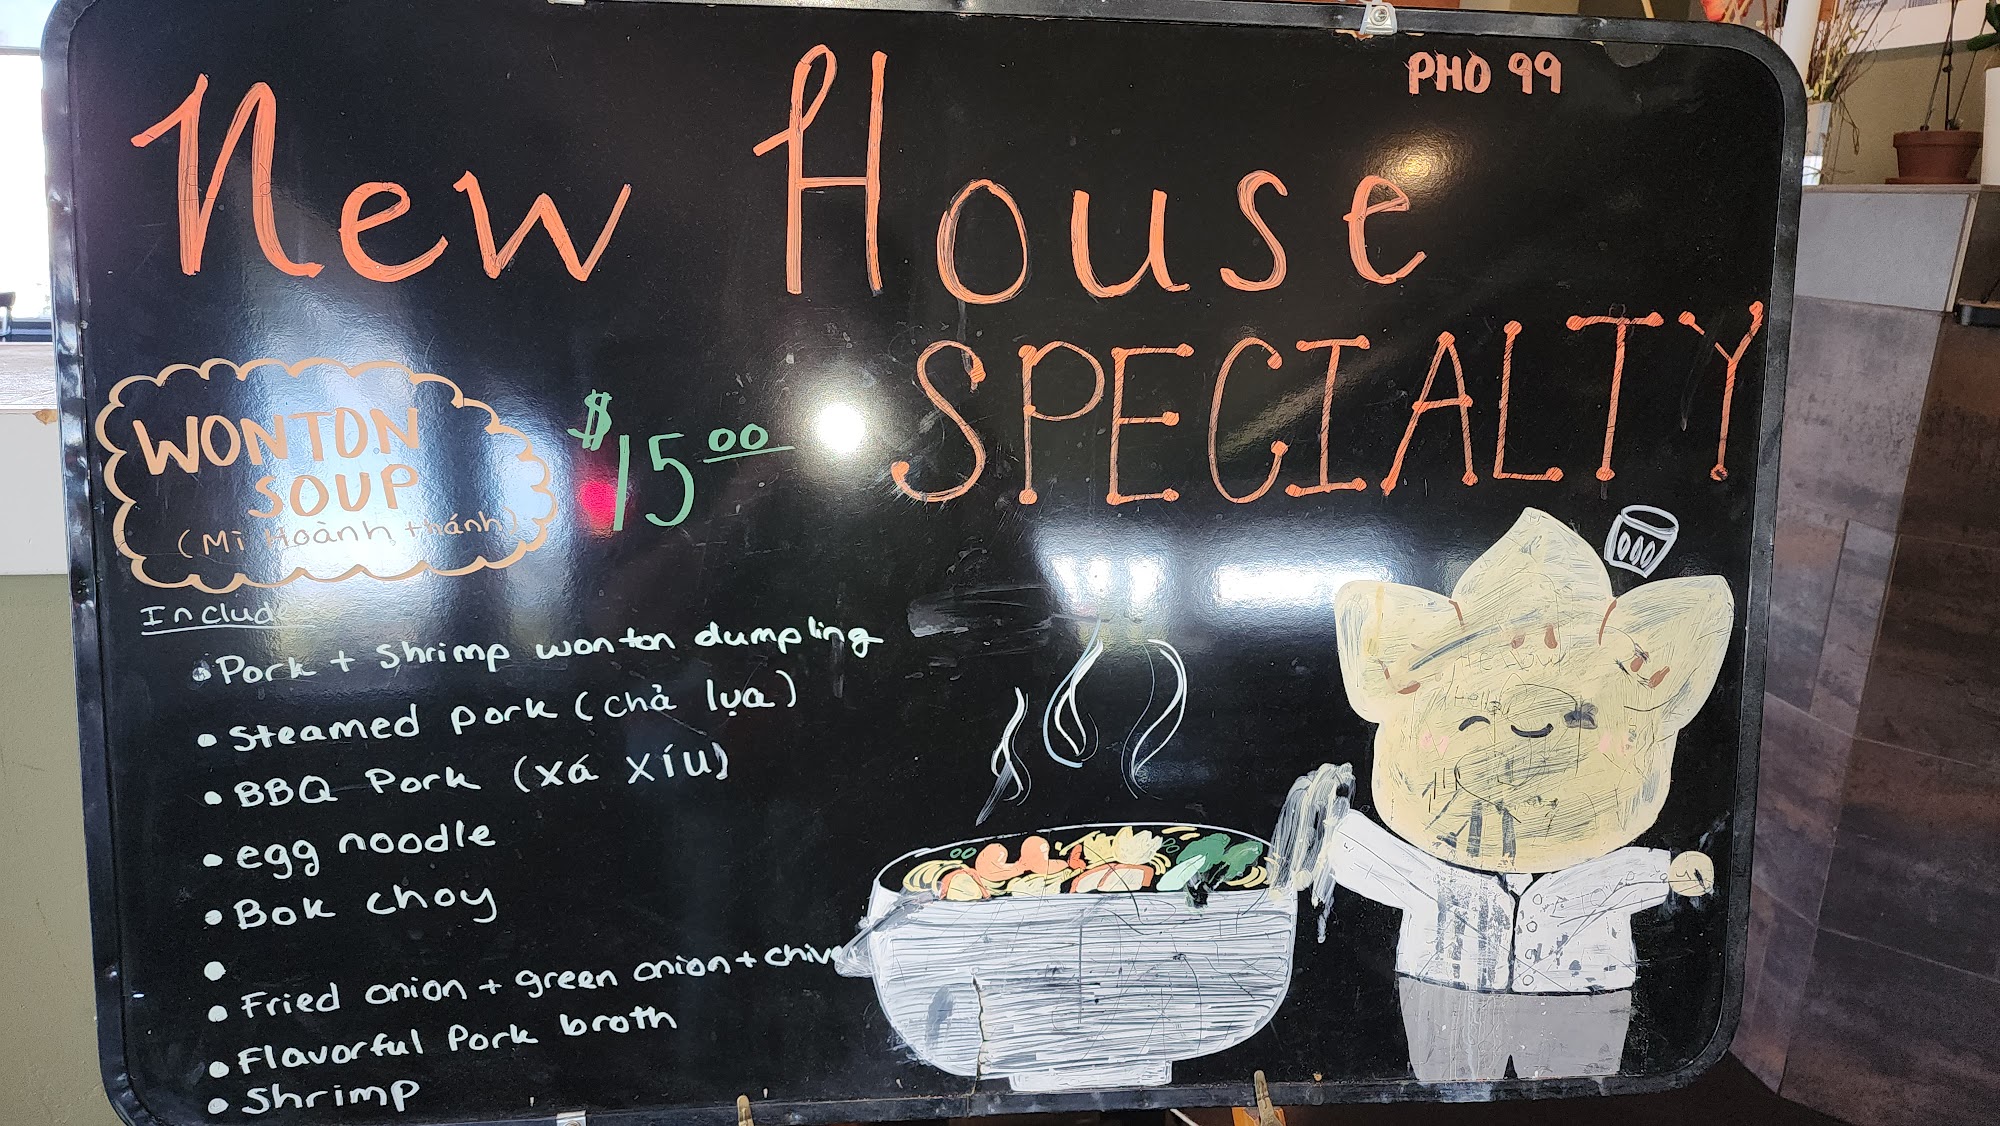 PHO 99
New House
SPECIALTY
WONTON
SOUP
(Mì Hoành thánh)
$15.00
Include
• Pork + shrimp wonton dumpling
• Steamed pork (chả lụa)
• BBQ Pork (xá xíu)
• egg noodle
• Bok choy
•
• Fried onion + green onion + chive
• Flavorful Pork broth
• Shrimp